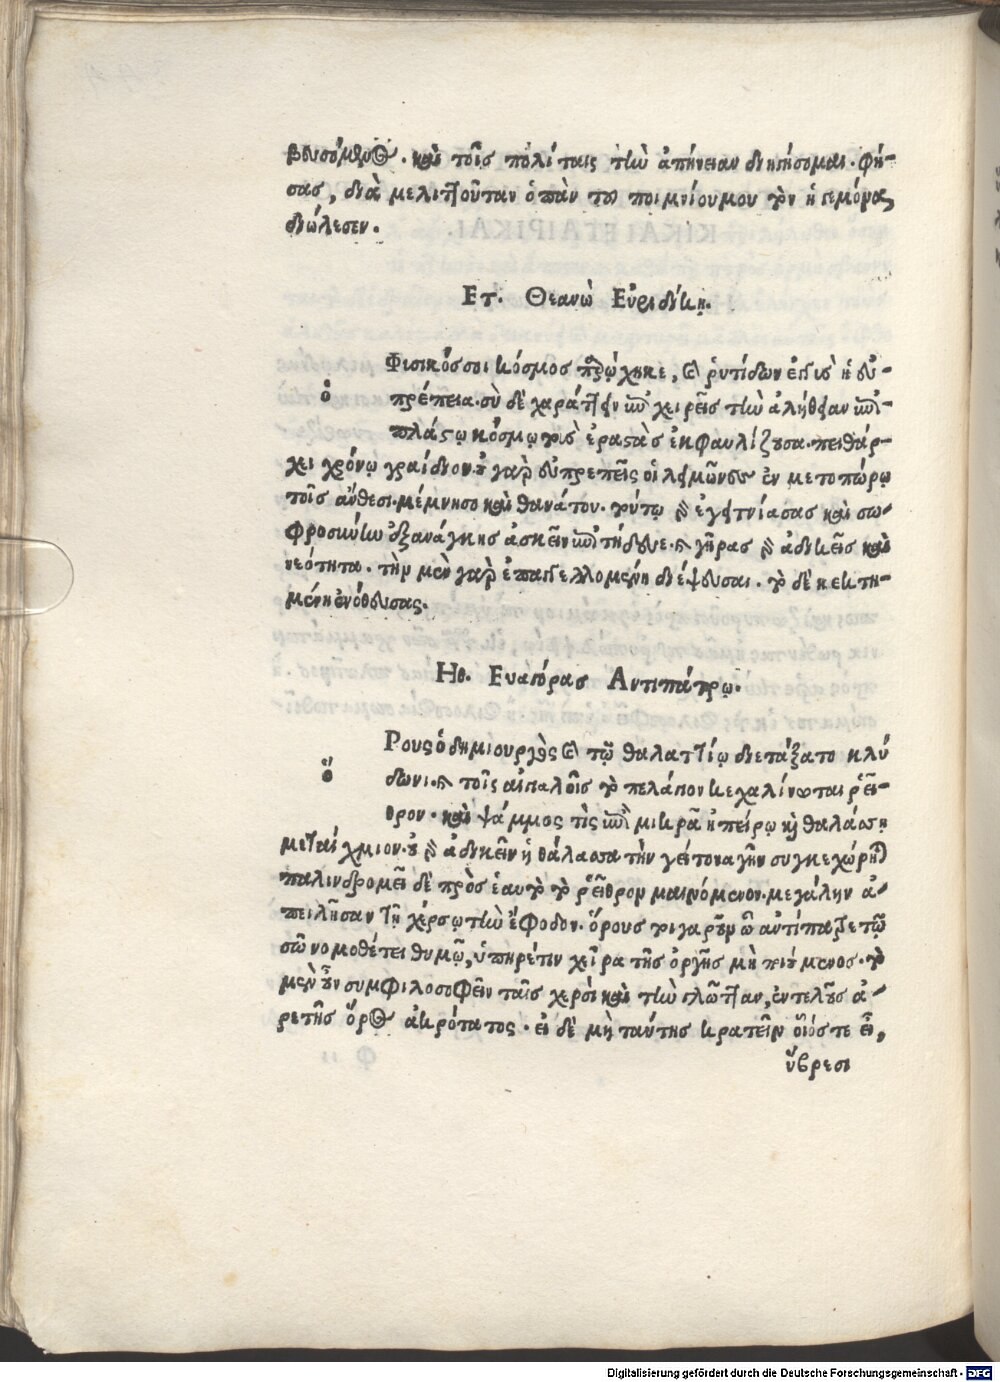 βουσόμενος. καὶ τοῖς πολίταις τὴν ἀπήνειαν διηγήσομαι. φή-
σας, διὰ μελιτοῦταν ὁ πὰν τοῦ ποιμνίου μου τὸν ἡγεμόνα,
διώλεσεν.
Ετ. Θεανὼ Εὐριδίκῃ.
Φυσικός σοι κόσμος προσώχηκε, καὶ ῥυτίδων ἐγγὺς ἡ εὐ-
ὁ
πρέπεια. σὺ δὲ χαράττειν ἐπιχειρεῖς τὴν ἀλήθειαν ἐπι-
πλάστῳ κόσμῳ τοὺς ἐραστὰς ἐκφαυλίζουσα. πειθάρ-
χει χρόνῳ γραίδιον. οὐ γὰρ εὐπρεπεῖς οἱ λειμῶνες ἐν μετοπώρῳ
τοῖς ἄνθεσι. μέμνησο καὶ θανάτου. τούτῳ γὰρ ἐγειτνίασας καὶ σω-
φροσύνην ἐξανάγκης ἀσκεῖν ἐπιτήδευε. καὶ γῆρας γὰρ ἀδικεῖς καὶ
νεότητα. τὴν μὲν γὰρ ἐπαγγελλομένη διέψευσαι. τὸ δὲ κεκτη-
μένη ἐνόθευσας.
Ηθ. Ευαγόρας Αντιπάτρῳ.
Ρους ὁ δημιουργὸς καὶ τῷ θαλαττίῳ διετάξατο κλύ
ὅ
δωνι. καὶ τοῖς αἰγιαλοῖς τὸ πελάγιον κεχαλίνωται ῥεῖ-
θρον. καὶ ψάμμος τὶς ἐπὶ μικρᾶ ἠπείρῳ καὶ θαλάσσῃ
μεταίχμιον. οὐ γὰρ ἀδικεῖν ἡ θάλασσα τὴν γείτονα γῆν συγκεχώρηται
παλινδρομεῖ δὲ πρὸς ἑαυτὸ τὸ ῥεῖθρον μαινόμενον. μεγάλην ἀ-
πειλῆσαν τῇ χέρσῳ τὴν ἔφοδον. ὅρους τιγαροῦν ὦ ἀντίπατρε τῷ
σῷ νομοθέτει θυμῷ, ὑπηρέτιν χεῖρα τῆς ὀργῆς μὴ ποιούμενος. τὸ
μὲν οὖν συμφιλοσοφεῖν ταῖς χερσὶ καὶ τὴν γλῶτταν, ἐντελοῦς ἀ-
ρετῆς ὅρος ἀκρότατος. εἰ δὲ μὴ ταύτης κρατεῖν οἷός τε εἶ,
ὕβρεσι
Digitalisierung gefördert durch die Deutsche Forschungsgemeinschaft - DFG